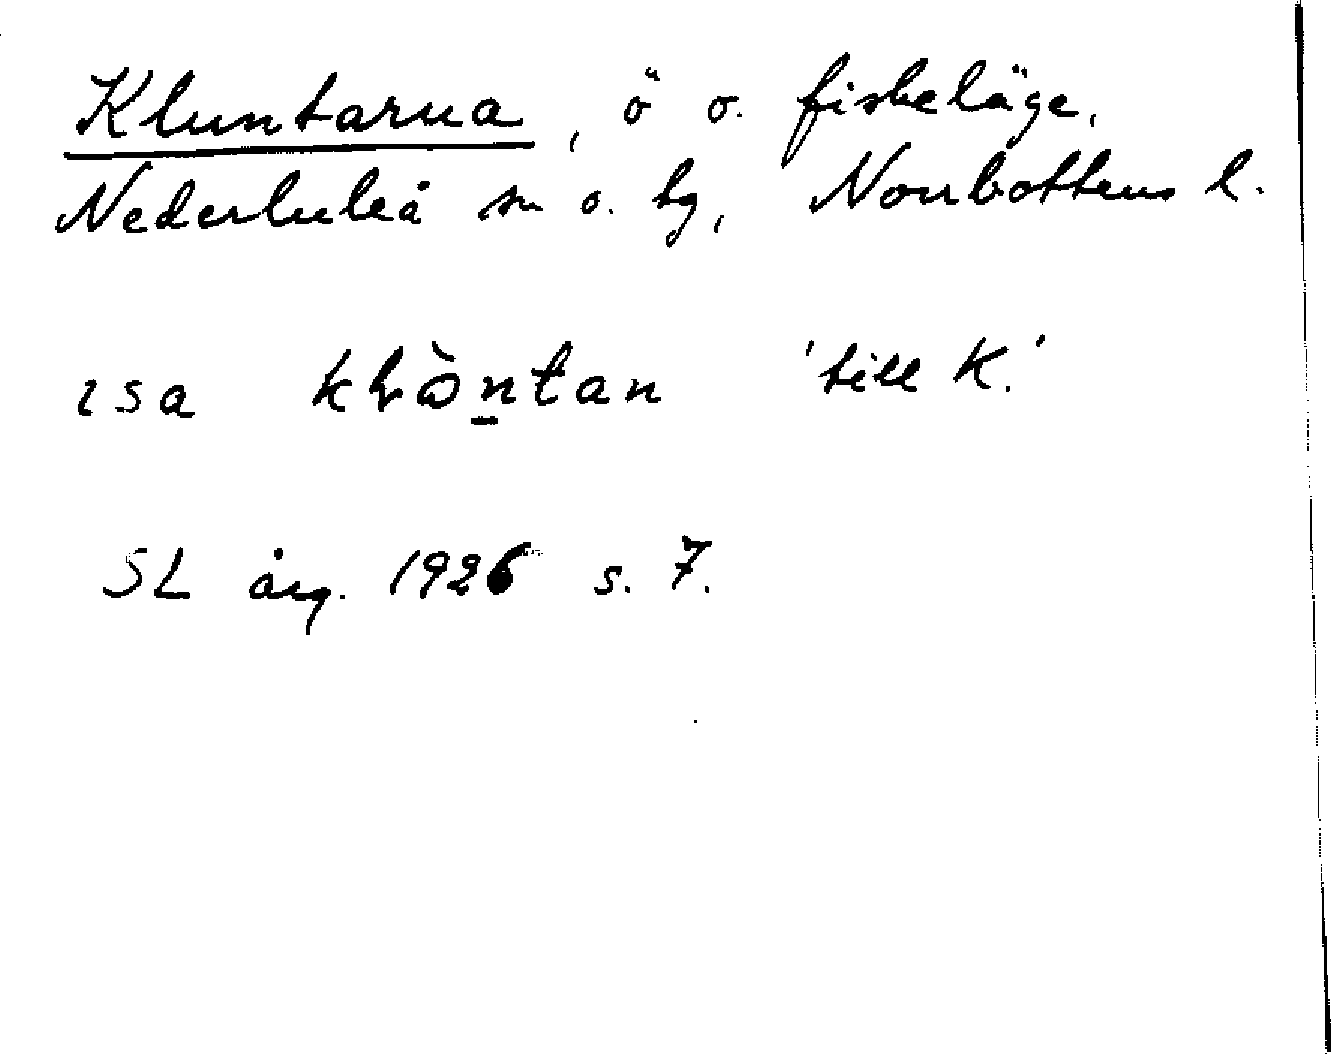 Kluntarna, ö o. fiskeläge,
Nederluleå sn o. tg, Norrbottens l.
ısa klòn̲tan 'till K.'
SL årg. 1926 s. 7.